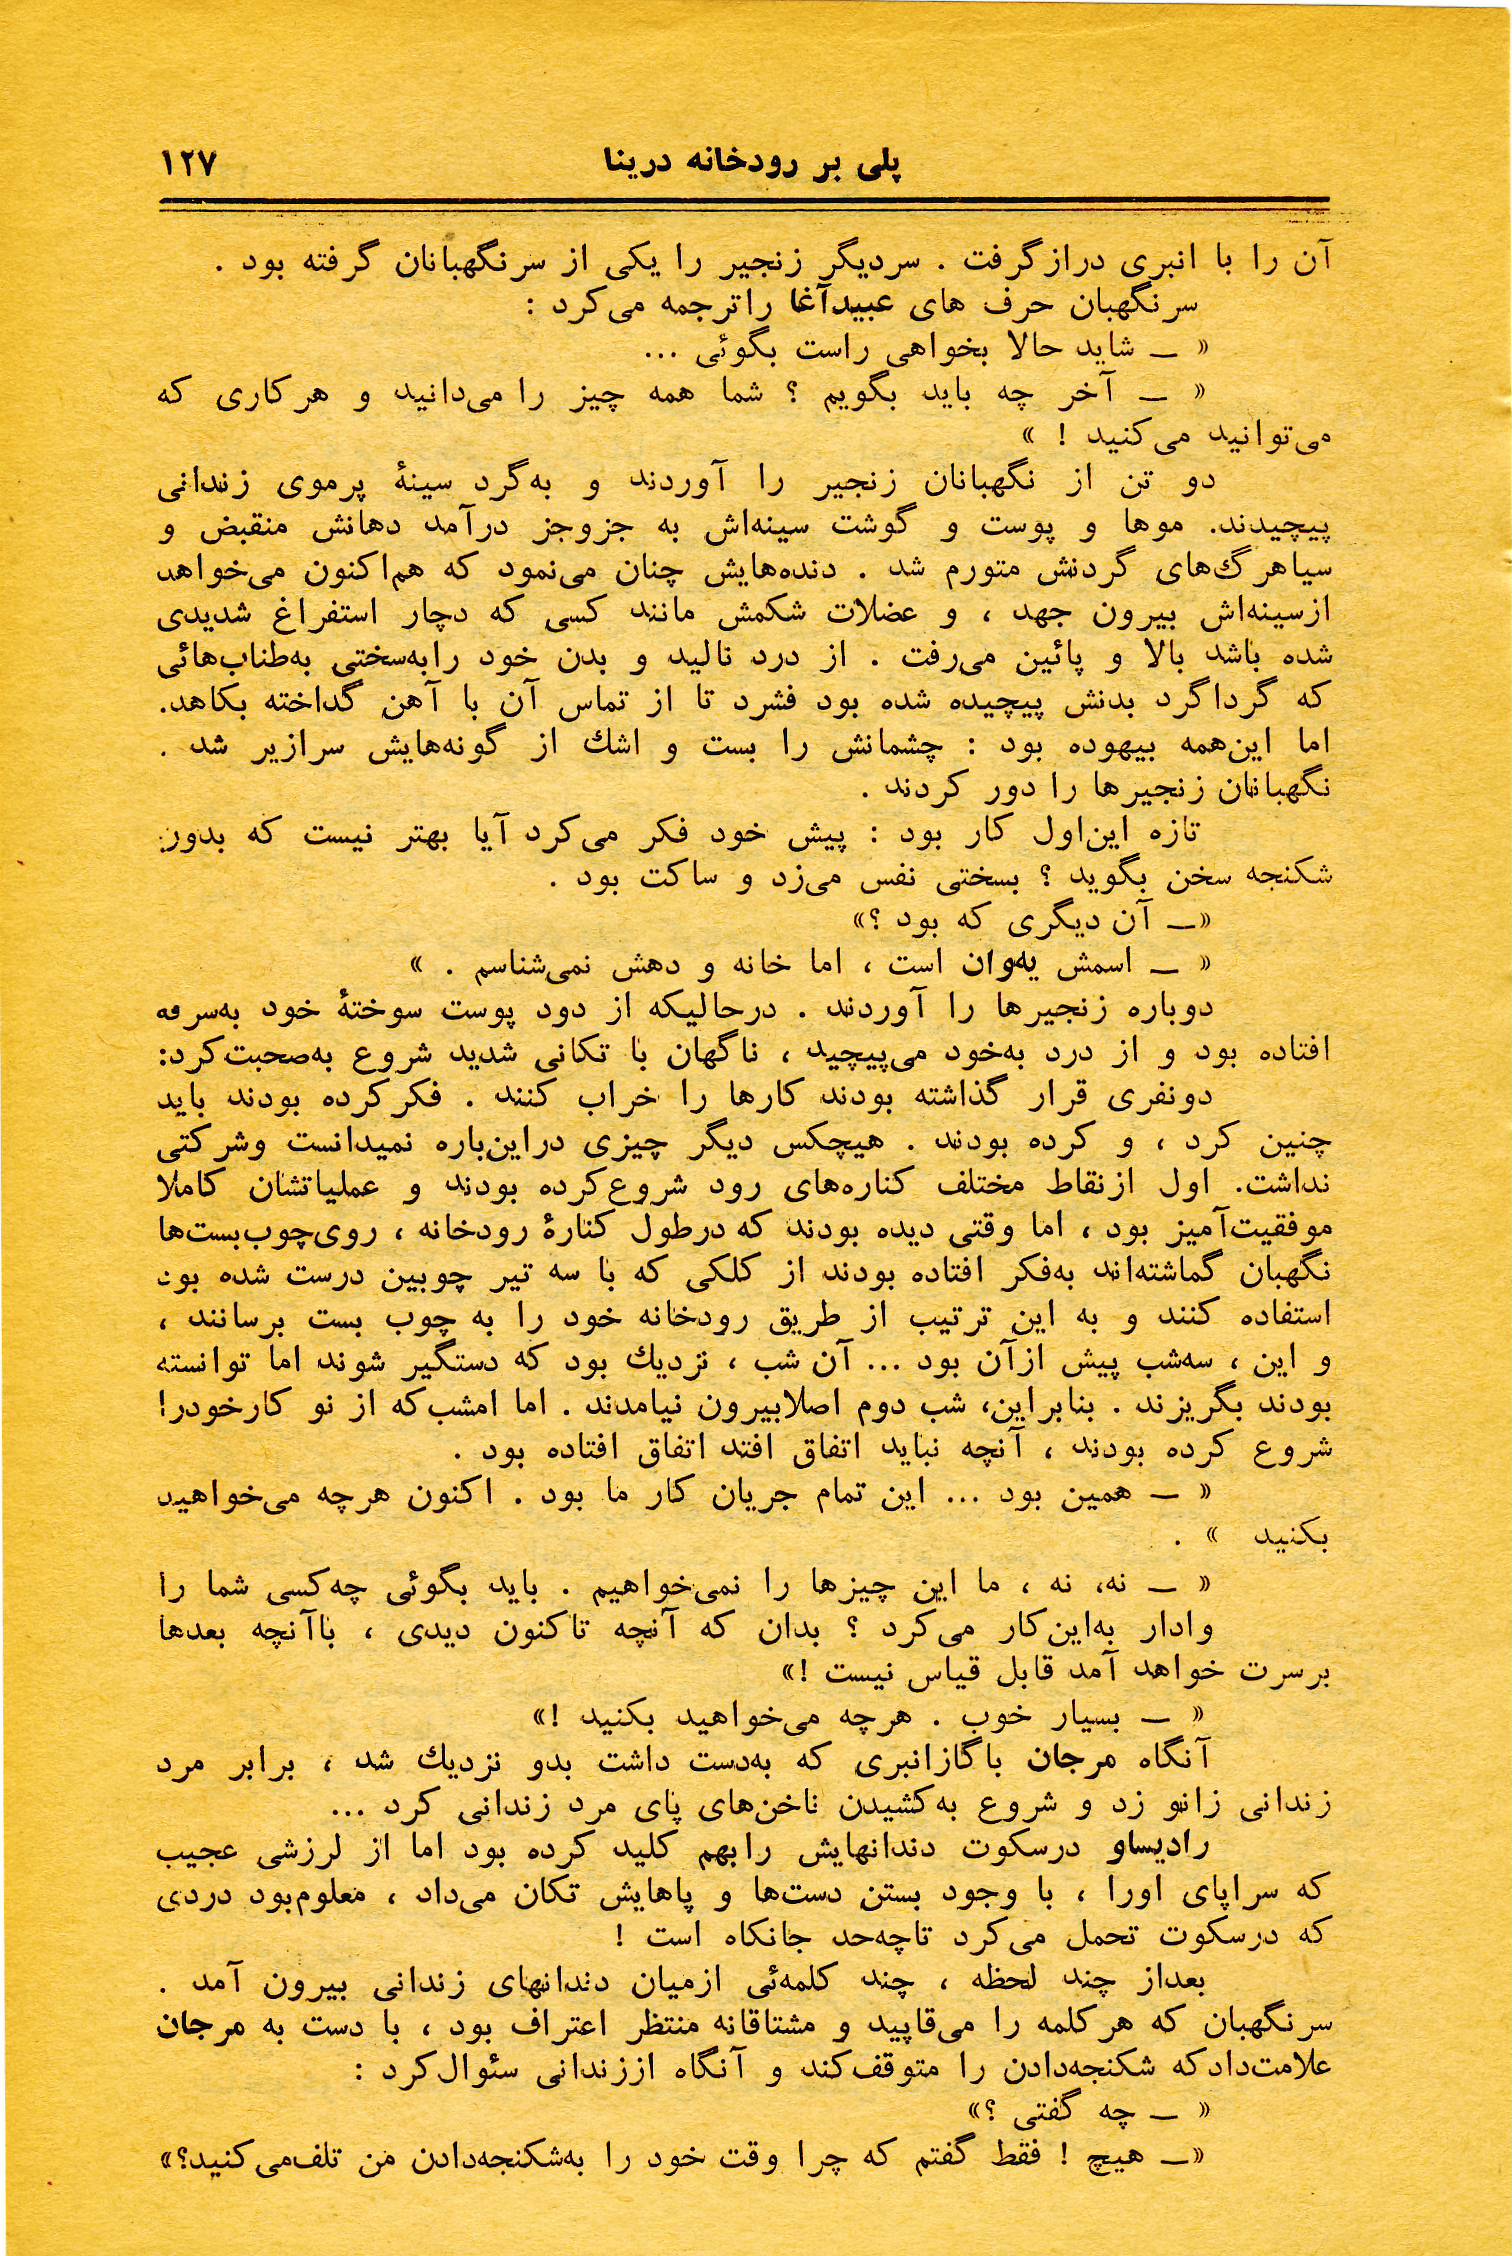 پلی بر رودخانه درینا
۱۲۷
آن را با انبری درازگرفت . سردیگر زنجیر را یکی از سرنگهبانان گرفته بود .
سرنگهبان حرف های عبیدآغا راترجمه می‌کرد :
« ــ شاید حالا بخواهی راست بگوئی ...
« ــ آخر چه باید بگویم ؟ شما همه چیز را می‌دانید و هرکاری که
می‌توانید می‌کنید ! »
دو تن از نگهبانان زنجیر را آوردند و به‌گرد سینهٔ پرموی زندانی
پیچیدند. موها و پوست و گوشت سینه‌اش به جزوجز درآمد دهانش منقبض و
سیاهرگ‌های گردنش متورم شد . دنده‌هایش چنان می‌نمود که هم‌اکنون می‌خواهد
ازسینه‌اش بیرون جهد ، و عضلات شکمش مانند کسی که دچار استفراغ شدیدی
شده باشد بالا و پائین می‌رفت . از درد نالید و بدن خود رابه‌سختی به‌طناب‌هائی
که گرداگرد بدنش پیچیده شده بود فشرد تا از تماس آن با آهن گداخته بکاهد.
اما این‌همه بیهوده بود : چشمانش را بست و اشك از گونه‌هایش سرازیر شد .
نگهبانان زنجیرها را دور کردند .
تازه این‌اول کار بود : پیش خود فکر می‌کرد آیا بهتر نیست که بدون
شکنجه سخن بگوید ؟ بسختی نفس می‌زد و ساکت بود .
«ــ آن دیگری که بود ؟»
« ــ اسمش یه‌وان است ، اما خانه و دهش نمی‌شناسم . »
دوباره زنجیرها را آوردند . درحالیکه از دود پوست سوختهٔ خود به‌سرفه
افتاده بود و از درد به‌خود می‌پیچید ، ناگهان با تکانی شدید شروع به‌صحبت‌کرد:
دونفری قرار گذاشته بودند کارها را خراب کنند . فکرکرده بودند باید
چنین کرد ، و کرده بودند . هیچکس دیگر چیزی دراین‌باره نمیدانست وشرکتی
نداشت. اول ازنقاط مختلف کناره‌های رود شروع‌کرده بودند و عملیاتشان کاملا
موفقیت‌آمیز بود ، اما وقتی دیده بودند که درطول کنارهٔ رودخانه ، روی‌چوب‌بست‌ها
نگهبان گماشته‌اند به‌فکر افتاده بودند از کلکی که با سه تیر چوبین درست شده بود
استفاده کنند و به این ترتیب از طریق رودخانه خود را به چوب بست برسانند ،
و این ، سه‌شب پیش ازآن بود ... آن شب ، نزدیك بود که دستگیر شوند اما توانسته
بودند بگریزند . بنابراین، شب دوم اصلابیرون نیامدند . اما امشب‌که از نو کارخودرا
شروع کرده بودند ، آنچه نباید اتفاق افتد اتفاق افتاده بود .
« ــ همین بود ... این تمام جریان کار ما بود . اکنون هرچه می‌خواهید
بکنید » .
« ــ نه، نه ، ما این چیزها را نمی‌خواهیم . باید بگوئی چه‌کسی شما را
وادار به‌این‌کار می‌کرد ؟ بدان که آنچه تاکنون دیدی ، باآنچه بعدها
برسرت خواهد آمد قابل قیاس نیست !»
« ــ بسیار خوب . هرچه می‌خواهید بکنید !»
آنگاه مرجان باگازانبری که به‌دست داشت بدو نزدیك شد ، برابر مرد
زندانی زانو زد و شروع به‌کشیدن ناخن‌های پای مرد زندانی کرد ...
رادیساو درسکوت دندانهایش رابهم کلید کرده بود اما از لرزشی عجیب
که سراپای اورا ، با وجود بستن دست‌ها و پاهایش تکان می‌داد ، معلوم‌بود دردی
که درسکوت تحمل می‌کرد تاچه‌حد جانکاه است !
بعداز چند لحظه ، چند کلمه‌ئی ازمیان دندانهای زندانی بیرون آمد .
سرنگهبان که هرکلمه را می‌قاپید و مشتاقانه منتظر اعتراف بود ، با دست به مرجان
علامت‌دادکه شکنجه‌دادن را متوقف‌کند و آنگاه اززندانی سئوال‌کرد :
« ــ چه گفتی ؟»
«ــ هیچ ! فقط گفتم که چرا وقت خود را به‌شکنجه‌دادن من تلف‌می‌کنید؟»